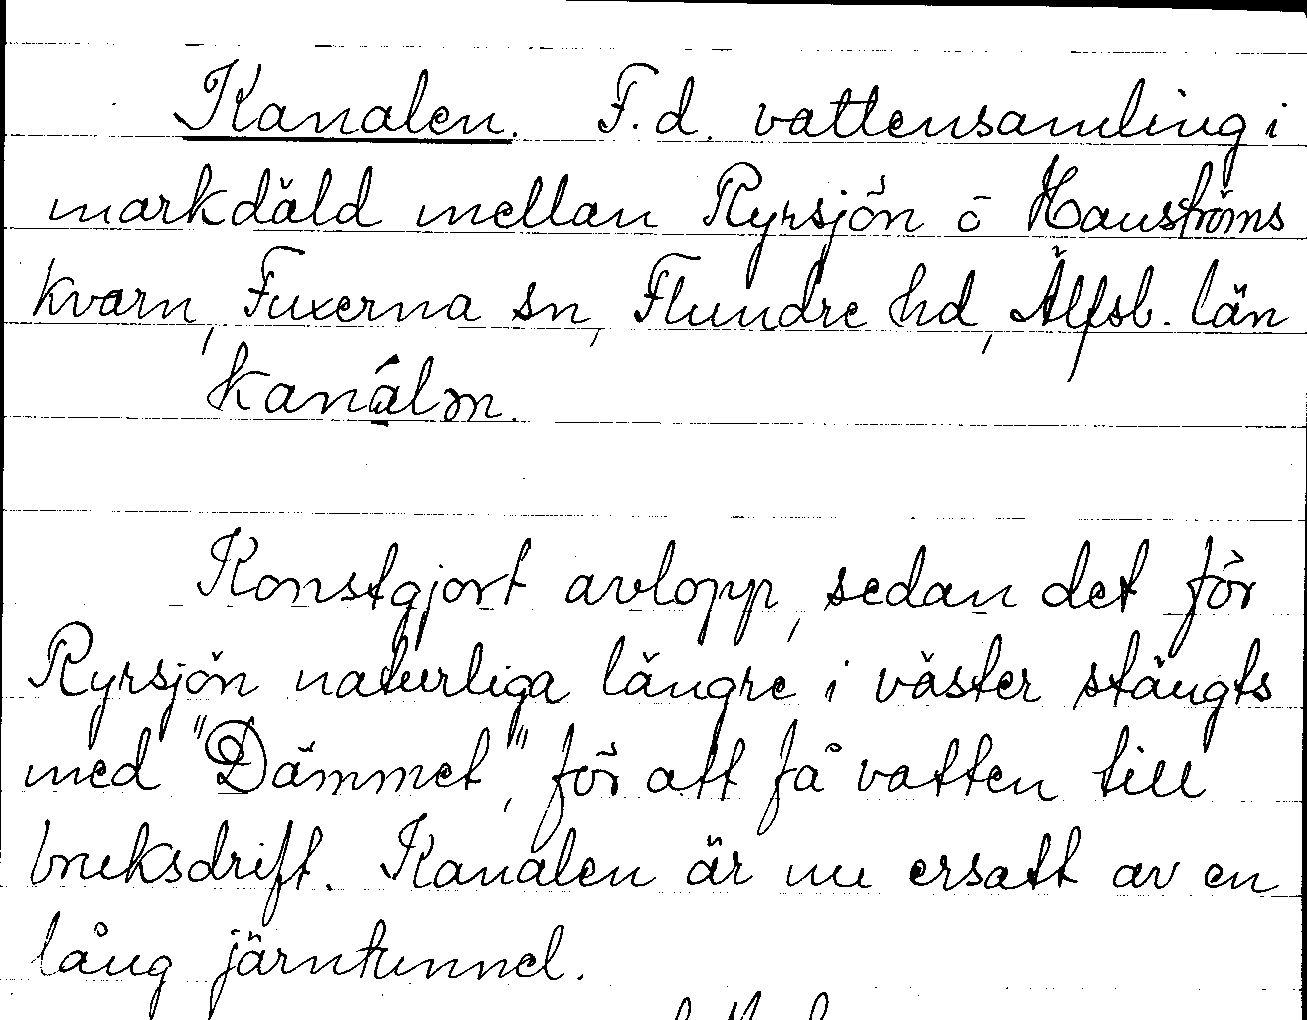 Kanalen. F.d. vattensamling i
markdäld mellan Ryrsjön o Hanströms
kvarn, Fuxerna sn, Flundre hd, Älfsb. län
kanáln.
Konstgjort avlopp, sedan det för
Ryrsjön naturliga längre i väster stängts
med "Dämmet", för att få vatten till
bruksdrift. Kanalen är nu ersatt av en
lång järntunnel.